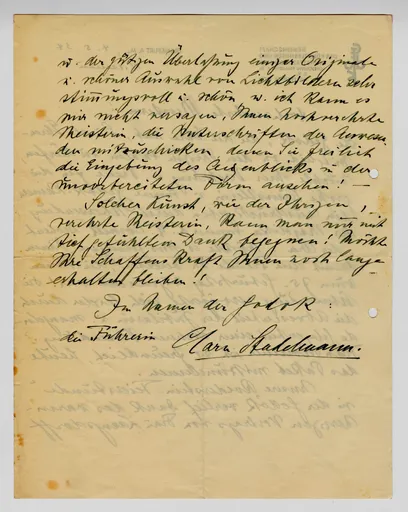 u. der gütigen Überlassung einiger Originale
u. schöner Auswahl von Lichtbildern sehr
stimmungsvoll u. schön u. ich kann es
mir nicht versagen, Ihnen hochverehrte
Meisterin, die Unterschriften der Anwesen
den mitzuschicken, denen Sie freilich
die Eingebung des Augenblicks u. der
unvorbereiteten Form ansehen! —
Solcher Kunst, wie der Ihrigen,
verehrte Meisterin, kann man nur mit
tief gefühltem Dank begegnen! Möcht
Ihre Schaffenskraft Ihnen noch lange
erhalten bleiben!
Im Namen der Gedok:
die Führerin Clara Stadelmann.